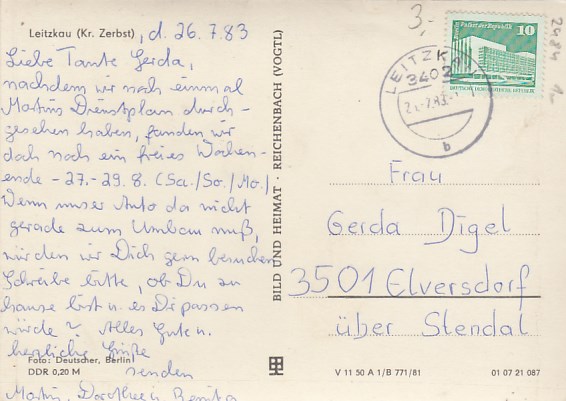 Leitzkau (Kr. Zerbst), d. 26.7.83
Liebe Tante Gerda,
nachdem wir noch einmal
Martins Dienstplan durch-
gesehen haben, fanden wir
doch noch ein freies Wochen-
ende - 27.-29.8. (Sa./So./Mo.)
Wenn unser Auto da nicht
gerade zum Umbau muß,
würden wir Dich gern besuchen
Schreibe bitte, ob Du zu
hause bist u. es Dir passen
würde? Alles Gute u.
herzliche Grüße
senden
Martin, Dorothee u.
Foto: Deutscher, Berlin
DDR 0,20 M
BILD UND HEIMAT · REICHENBACH (VOGTL)
3,-
LEITZK
3402
b
10
Palast der Republik
DEUTSCHE DEMOKRATISCHE REPUBLIK
2484
Frau
Gerda Digel
3501 Elversdorf
über Stendal
V 11 50 A 1/B 771/81
01 07 21 087